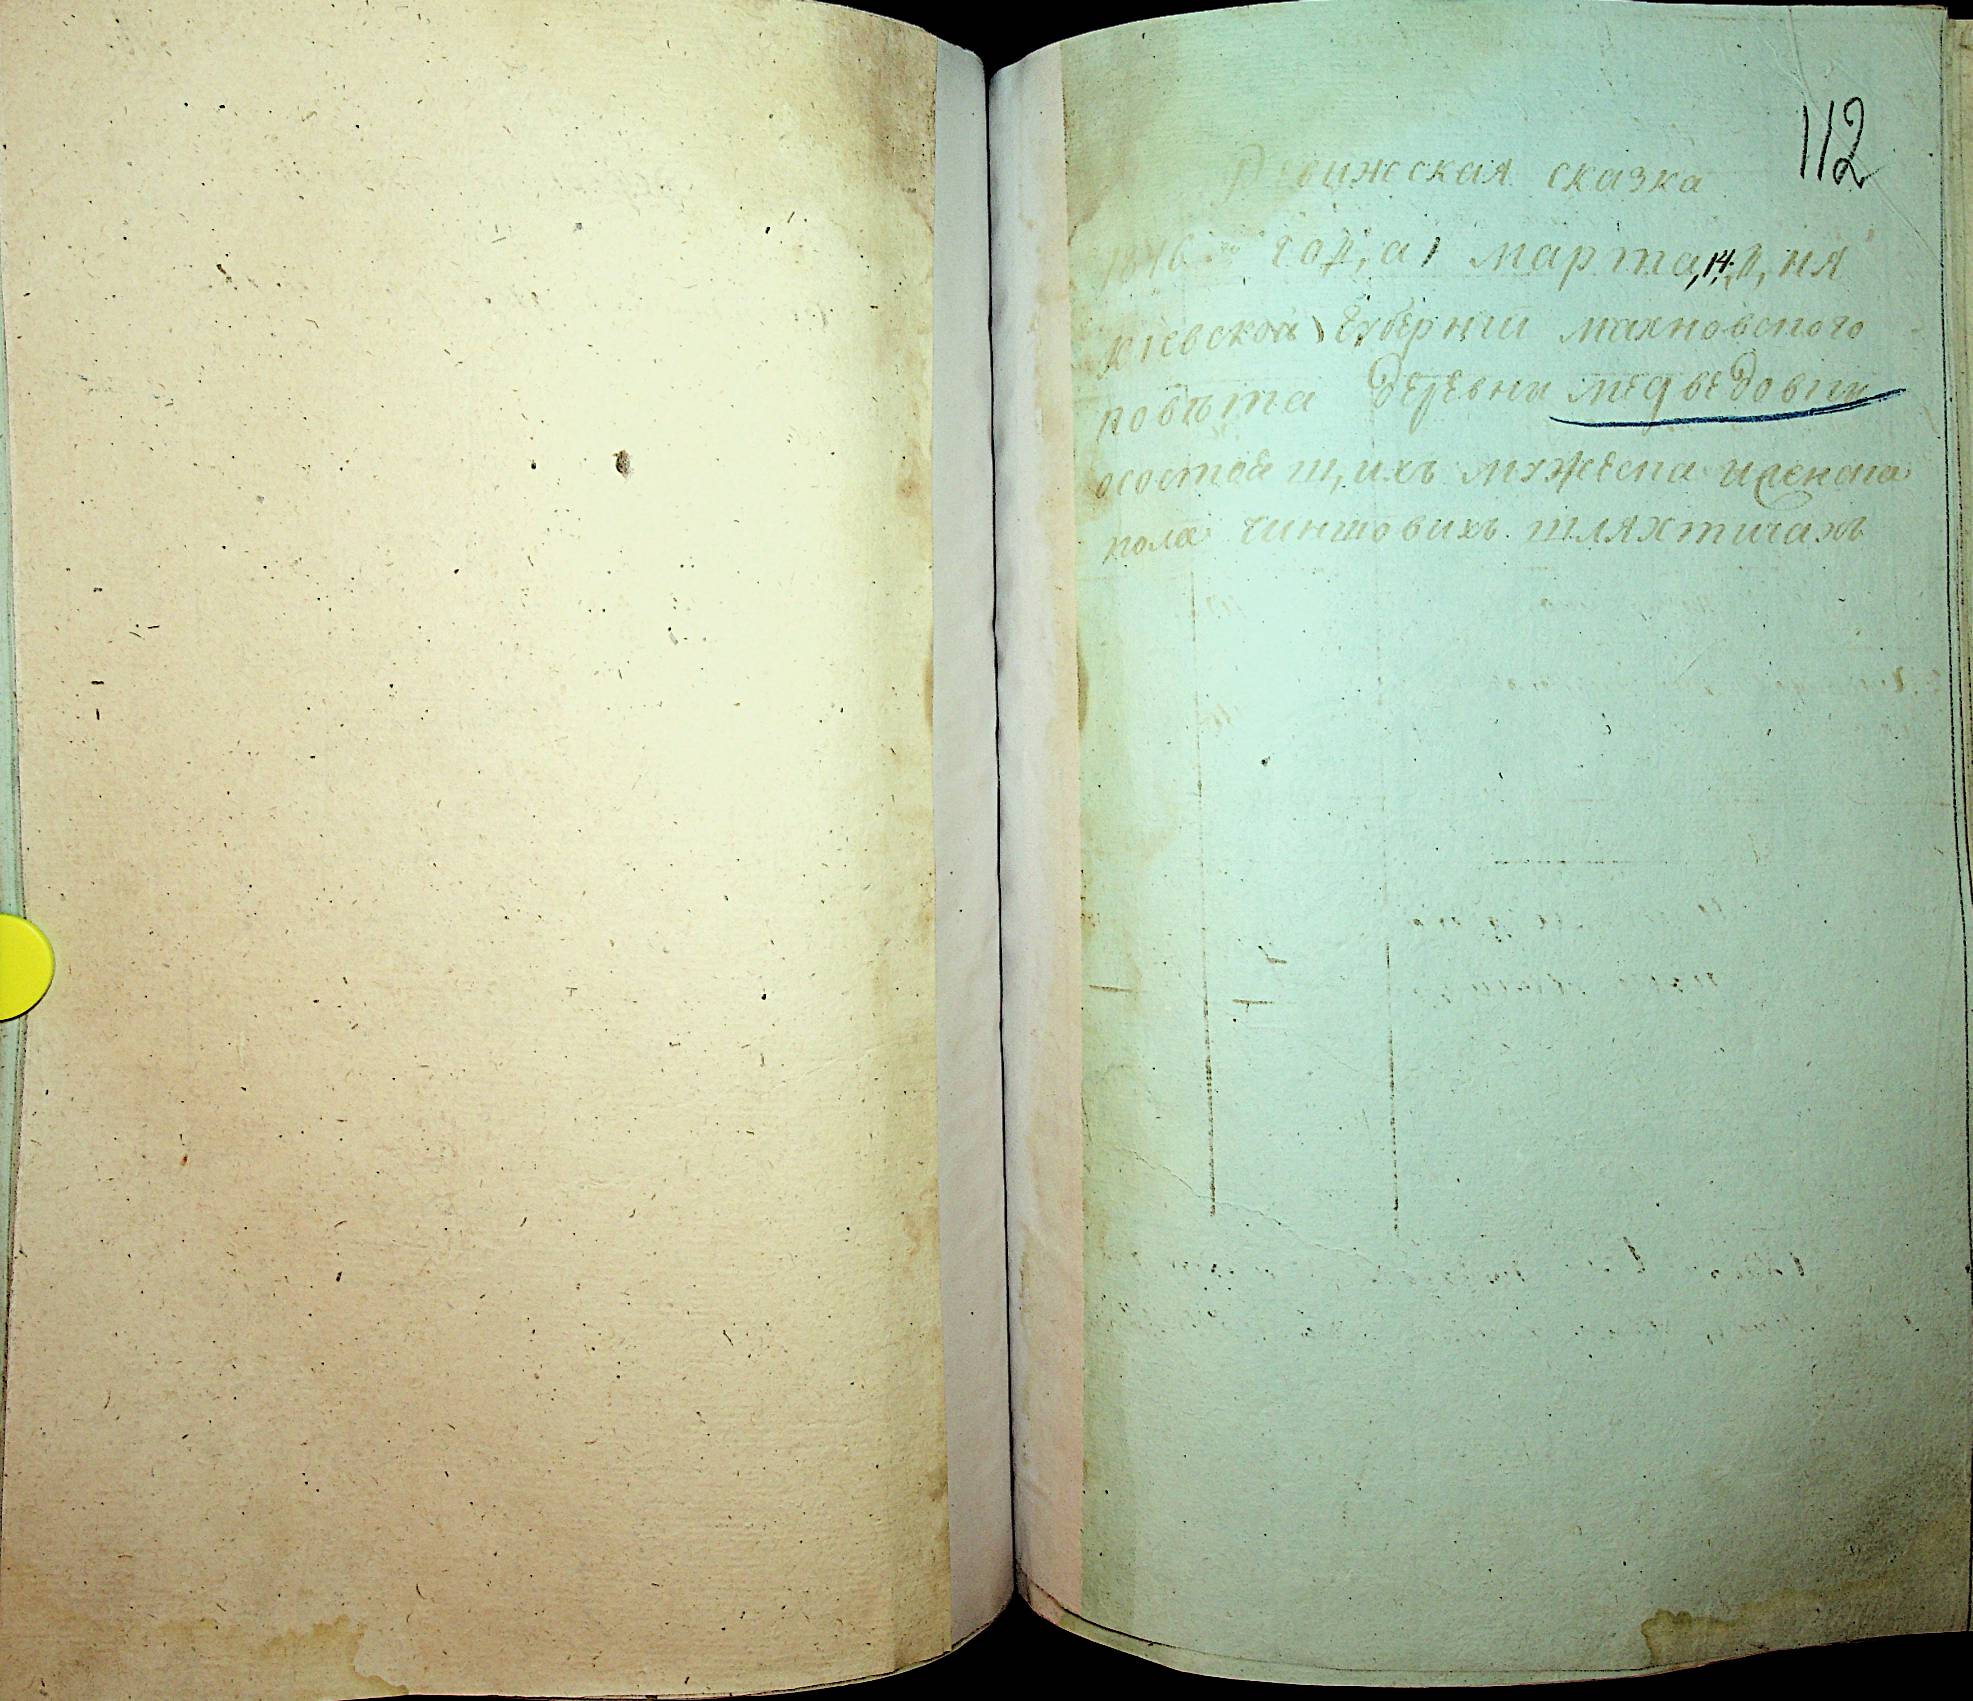 112
Ревижская сказка
1816 года, марта 14 дня
кіевской Губерніи махновского
повѣта Деревни медведовки
осостоящихъ мужеска иженска
пола чиншовихъ шляхтичахъ